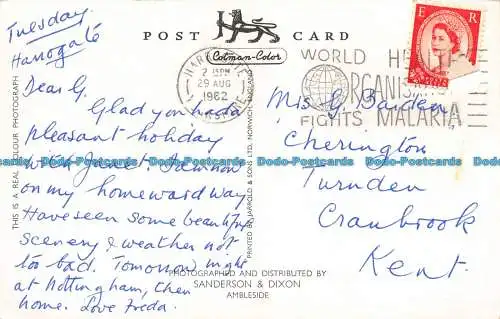 Tuesday.
Harrogate
Dear G.
Glad you had a
pleasant holiday
with Jane. I am now
on my homeward way.
Have seen some beautiful
scenery & weather not
too bad. Tomorrow night
at Nottingham, then
home. Love Freda.
POST CARD
Colman-Color
HARROGATE
2 15PM
29 AUG
1962
WORLD HEALTH
ORGANISATION
FIGHTS MALARIA
E R
Miss G. Barden
Cherington
Turnden
Cranbrook
Kent.
THIS IS A REAL COLOUR PHOTOGRAPH
PRINTED BY JARROLD & SONS LTD. NORWICH
PHOTOGRAPHED AND DISTRIBUTED BY
SANDERSON & DIXON
AMBLESIDE
Dodo-Postcards Dodo-Postcards Dodo-Postcards Dodo-Postcards Dodo-Postcards